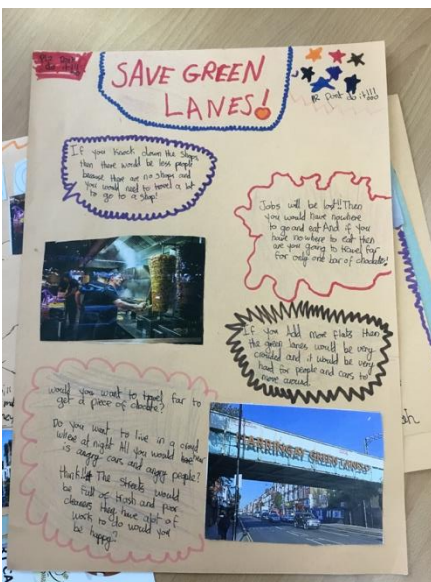 Plz Don't
do it!!!
SAVE GREEN
LANES!
Plz don't do it!!!
If you knock down the shops
then there would be less people
because there are no shops and
you would need to travel a lot
to go to a shop!
Jobs will be lost!! Then
you would have nowhere
to go and eat And if you
have nowhere to eat then
are you going to travel far
for only one bar of chocolate!
If you Add more flats then
the green lanes would be very
crowded and it would be very
hard for people and cars to
move around.
would you want to travel far to
get a piece of choclate?
Do you want to live in a crowd
where at night All you would hear
is angry cars and angry people?
think!! The streets would
be full of trash and poor
cleaners they have alot of
work to do would you
be happy?
HARRINGAY GREEN LANES